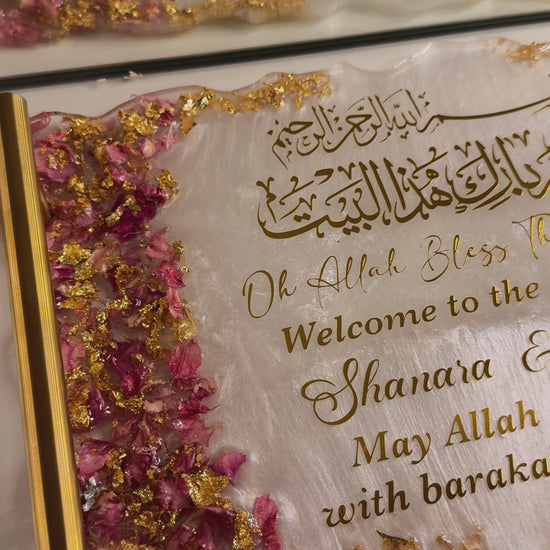 بسم الله الرحمن الرحيم
بارك هذا البيت
Oh Allah Bless
Welcome to the
Shanara &
May Allah
with baraka